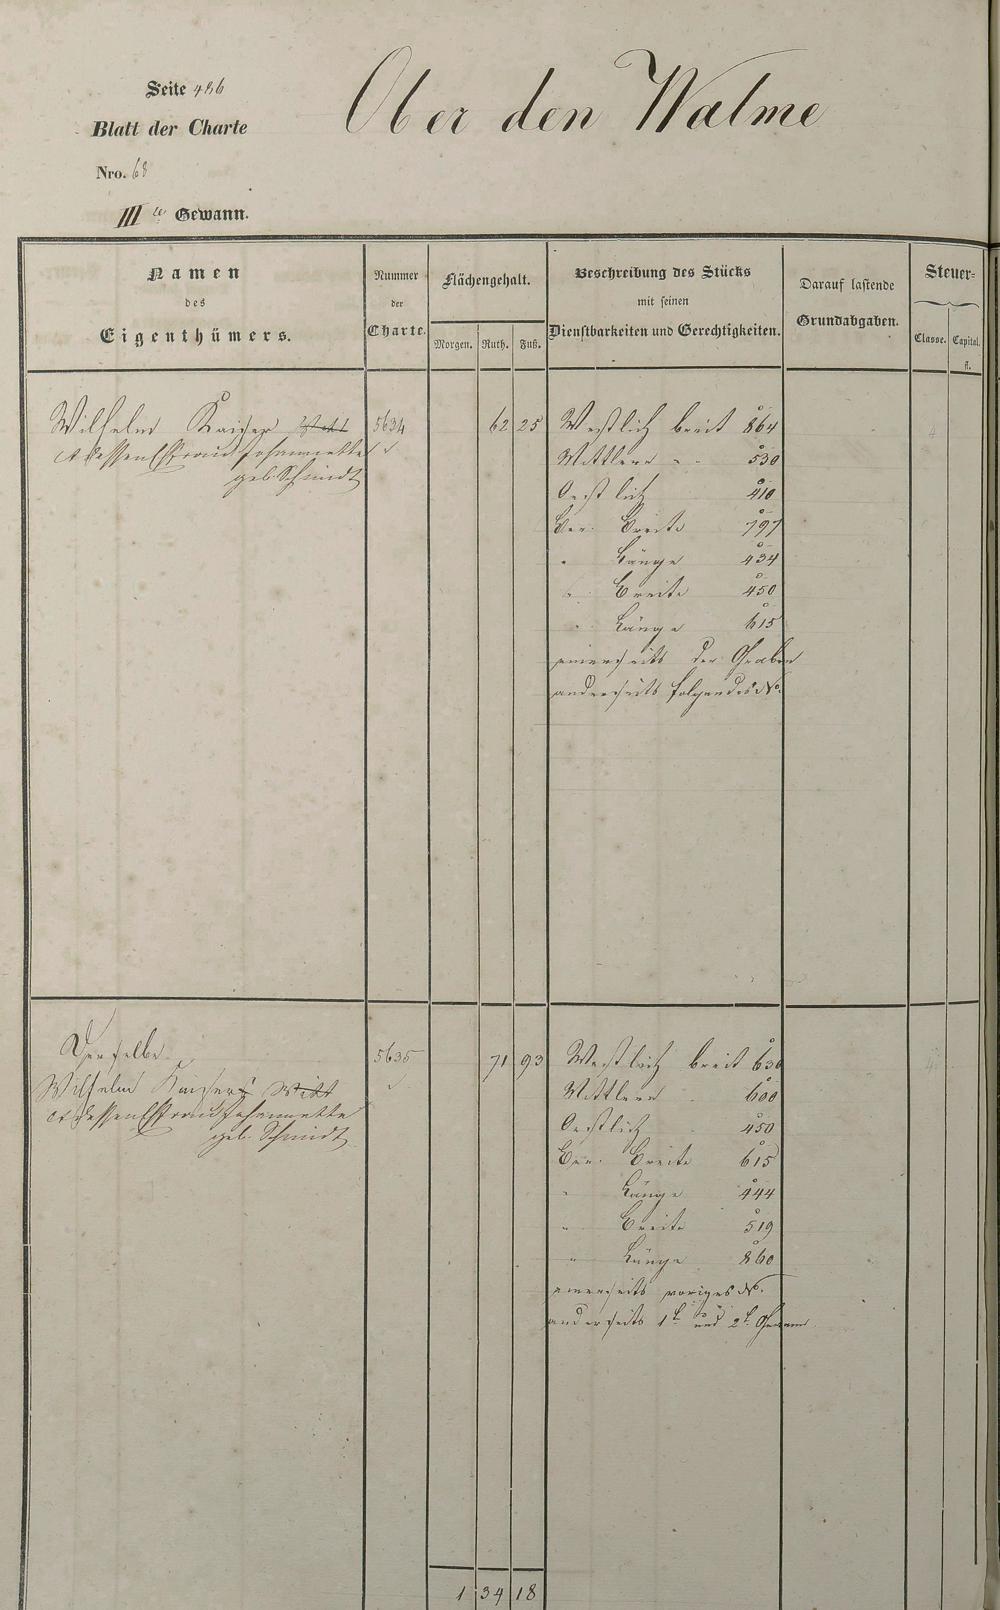 Seite 486
Ober den Walme
Blatt der Charte
Nro. 68
III te Gewann.
Namen
des
Eigenthümers.
Nummer
der
Charte.
Flächengehalt.
Morgen. Ruth. Fuß.
Beschreibung des Stücks
mit seinen
Dienstbarkeiten und Gerechtigkeiten.
Darauf lastende
Grundabgaben.
Steuer-
Classe. Capital.
fl.
Wilhelm Kaiser 5634 62 25 Westlich breit 864
et dessen Ehefrau Johannette Mittlere " " 530
geb. Schmidt Oestlich 410
Ber. Breite 797
" Länge 434
" Breite 450
" Länge 615
einerseits der Graben
anderseits folgendes No.
Derselbe 5635 71 93 Westlich breit 630
Wilhelm Kaiser Witt Mittlere 600
et dessen Ehefrau Johannette Oestlich 450
geb. Schmidt Ber. Breite 615
" Länge 444
" Breite 519
" Länge 860
einerseits voriges No.
anderseits 1t und 2t Gewann
1 34 18